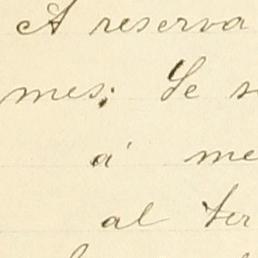 A reserva
mes; Se
á me
al ter